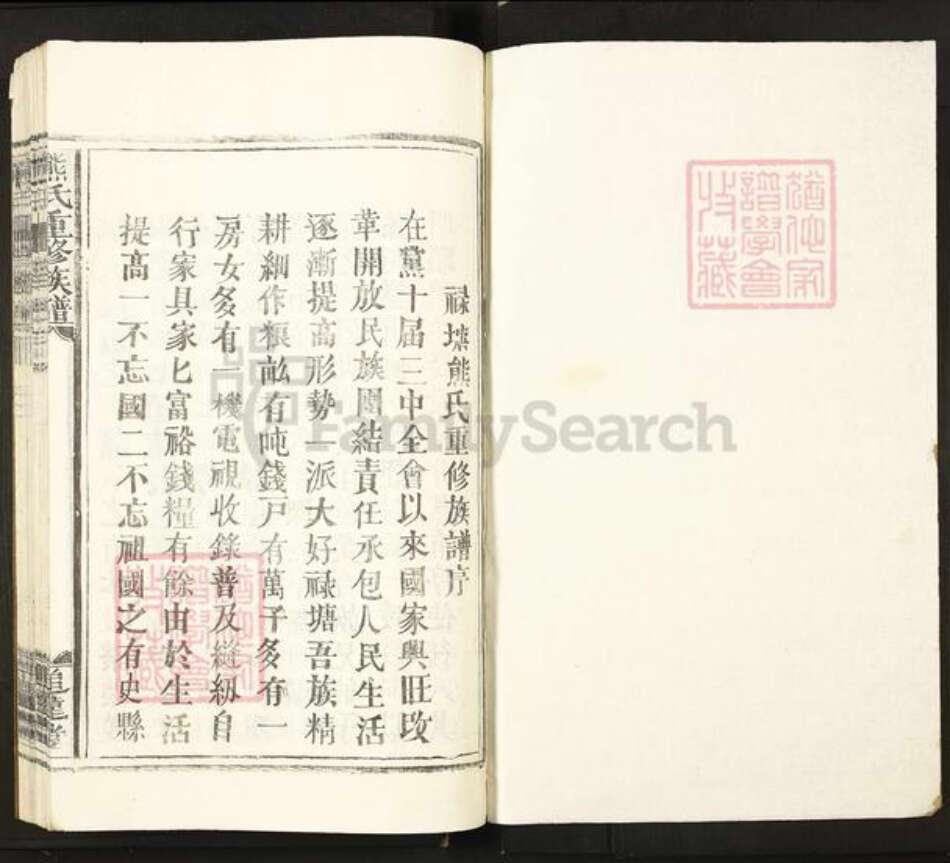 猶他家
譜學會
收藏
祿塘熊氏重修族譜序
在黨十届三中全會以來國家興旺改
革開放民族團結責任承包人民生活
逐漸提高形勢一派大好祿塘吾族精
耕細作粮畝有吨錢戸有萬子多有一
房女多有一機電視收錄普及縫紉自
行家具家匕富裕錢糧有餘由於生活
提高一不忘國二不忘祖國之有史縣
熊氏重修族譜
FamilySearch
猶他家
譜學會
收藏